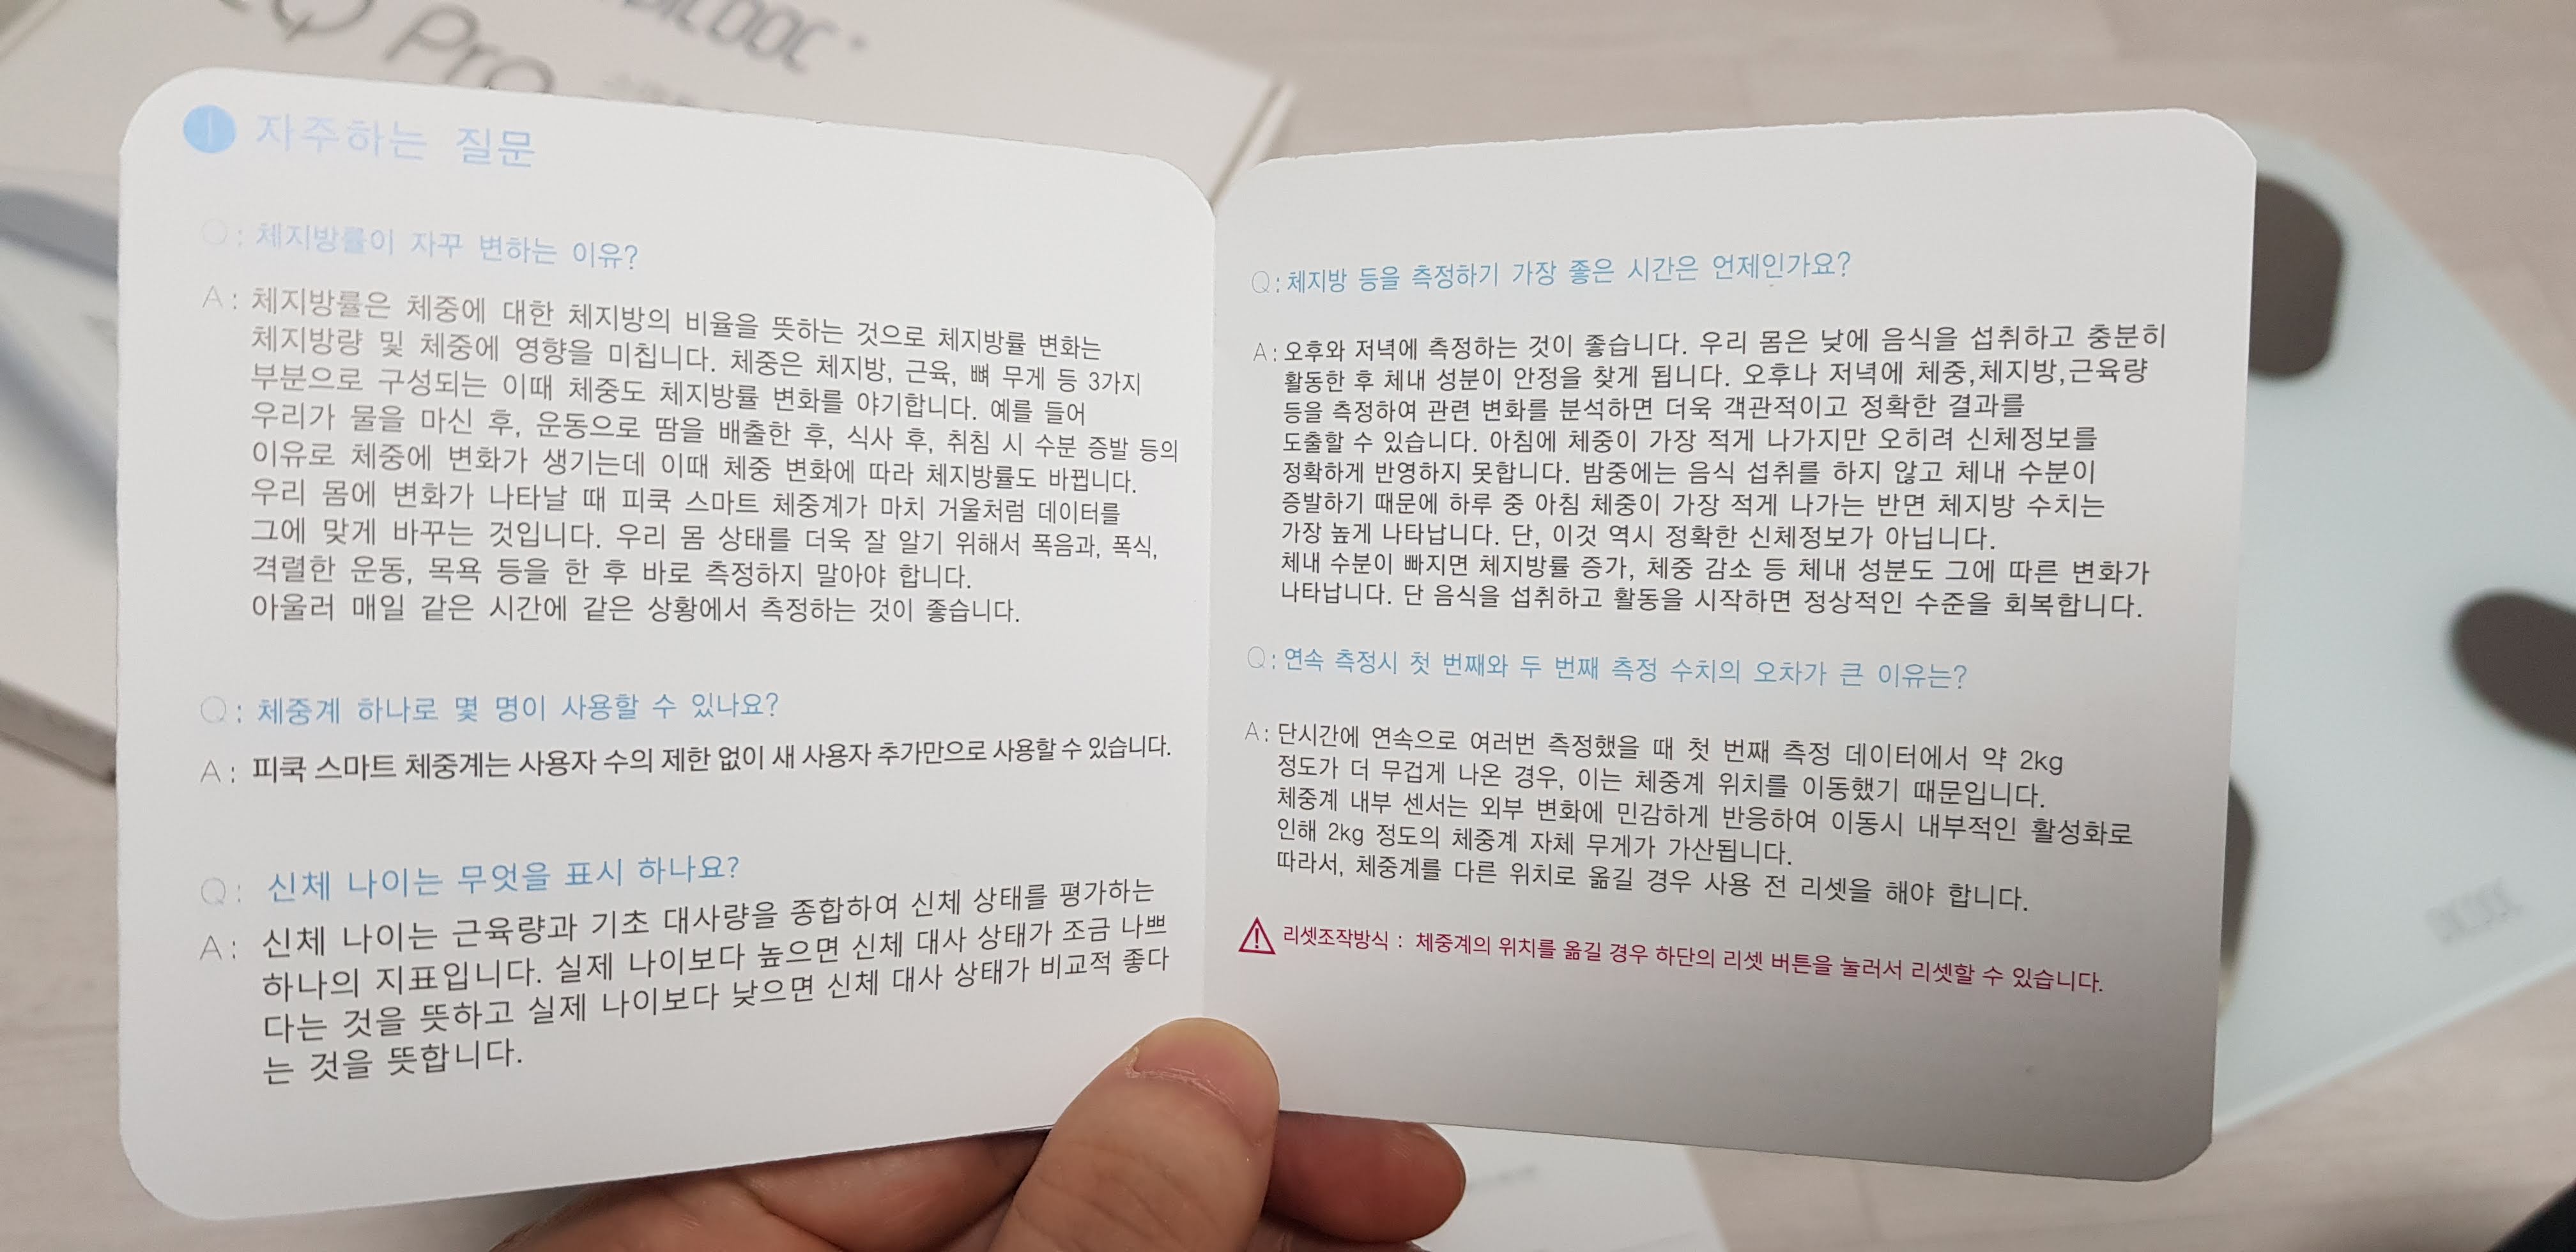 Pro
자주하는 질문
Q: 체지방률이 자꾸 변하는 이유?
A: 체지방률은 체중에 대한 체지방의 비율을 뜻하는 것으로 체지방률 변화는
체지방량 및 체중에 영향을 미칩니다. 체중은 체지방, 근육, 뼈 무게 등 3가지
부분으로 구성되는 이때 체중도 체지방률 변화를 야기합니다. 예를 들어
우리가 물을 마신 후, 운동으로 땀을 배출한 후, 식사 후, 취침 시 수분 증발 등의
이유로 체중에 변화가 생기는데 이때 체중 변화에 따라 체지방률도 바뀝니다.
우리 몸에 변화가 나타날 때 피쿡 스마트 체중계가 마치 거울처럼 데이터를
그에 맞게 바꾸는 것입니다. 우리 몸 상태를 더욱 잘 알기 위해서 폭음과, 폭식,
격렬한 운동, 목욕 등을 한 후 바로 측정하지 말아야 합니다.
아울러 매일 같은 시간에 같은 상황에서 측정하는 것이 좋습니다.
Q: 체중계 하나로 몇 명이 사용할 수 있나요?
A: 피쿡 스마트 체중계는 사용자 수의 제한 없이 새 사용자 추가만으로 사용할 수 있습니다.
Q: 신체 나이는 무엇을 표시 하나요?
A: 신체 나이는 근육량과 기초 대사량을 종합하여 신체 상태를 평가하는
하나의 지표입니다. 실제 나이보다 높으면 신체 대사 상태가 조금 나쁘
다는 것을 뜻하고 실제 나이보다 낮으면 신체 대사 상태가 비교적 좋다
는 것을 뜻합니다.
Q: 체지방 등을 측정하기 가장 좋은 시간은 언제인가요?
A: 오후와 저녁에 측정하는 것이 좋습니다. 우리 몸은 낮에 음식을 섭취하고 충분히
활동한 후 체내 성분이 안정을 찾게 됩니다. 오후나 저녁에 체중,체지방,근육량
등을 측정하여 관련 변화를 분석하면 더욱 객관적이고 정확한 결과를
도출할 수 있습니다. 아침에 체중이 가장 적게 나가지만 오히려 신체정보를
정확하게 반영하지 못합니다. 밤중에는 음식 섭취를 하지 않고 체내 수분이
증발하기 때문에 하루 중 아침 체중이 가장 적게 나가는 반면 체지방 수치는
가장 높게 나타납니다. 단, 이것 역시 정확한 신체정보가 아닙니다.
체내 수분이 빠지면 체지방률 증가, 체중 감소 등 체내 성분도 그에 따른 변화가
나타납니다. 단 음식을 섭취하고 활동을 시작하면 정상적인 수준을 회복합니다.
Q: 연속 측정시 첫 번째와 두 번째 측정 수치의 오차가 큰 이유는?
A: 단시간에 연속으로 여러번 측정했을 때 첫 번째 측정 데이터에서 약 2kg
정도가 더 무겁게 나온 경우, 이는 체중계 위치를 이동했기 때문입니다.
체중계 내부 센서는 외부 변화에 민감하게 반응하여 이동시 내부적인 활성화로
인해 2kg 정도의 체중계 자체 무게가 가산됩니다.
따라서, 체중계를 다른 위치로 옮길 경우 사용 전 리셋을 해야 합니다.
리셋조작방식 : 체중계의 위치를 옮길 경우 하단의 리셋 버튼을 눌러서 리셋할 수 있습니다.